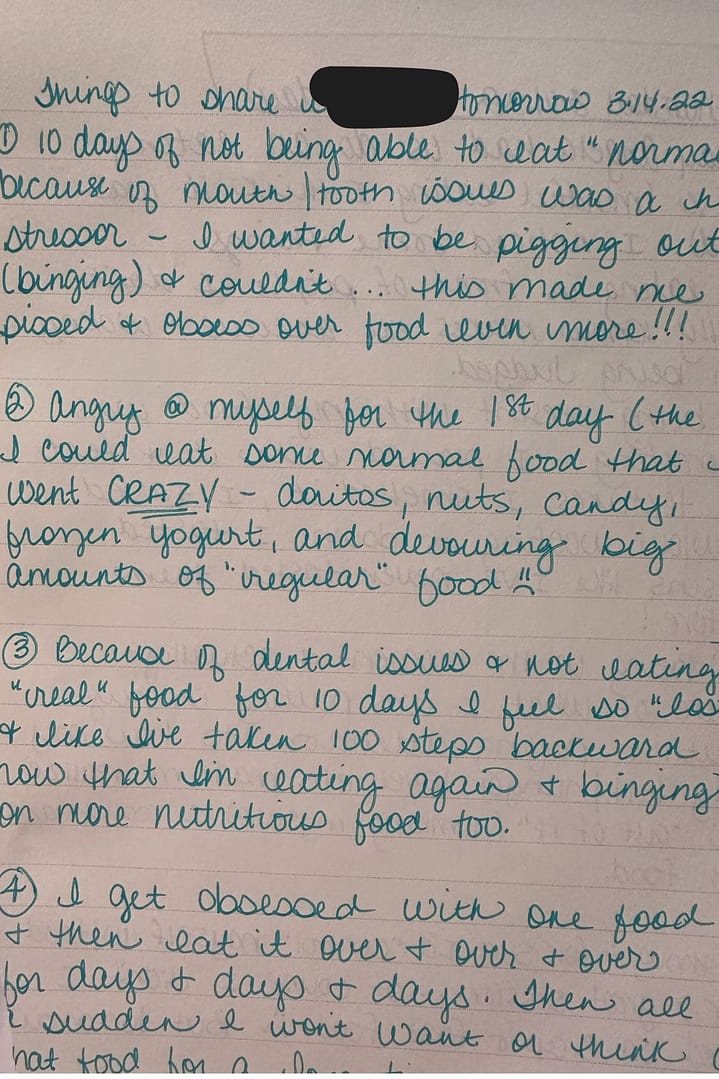 Things to share tomorrow 3.14.22
① 10 days of not being able to eat "norma
because of mouth/tooth issues was a
stressor - I wanted to be pigging out
(binging) & couldn't... this made me
pissed & obsess over food even more!!!
② Angry @ myself for the 1st day (the
I could eat some normal food that
went CRAZY - doritos, nuts, candy,
frozen yogurt, and devouring big
amounts of "regular" food
③ Because of dental issues & not eating
"real" food for 10 days I feel so "los
& like I've taken 100 steps backward
now that I'm eating again & binging
on more nutritious food too.
④ I get obsessed with one food
& then eat it over & over & over
for days & days & days. Then all
sudden I won't want or think
that food for a